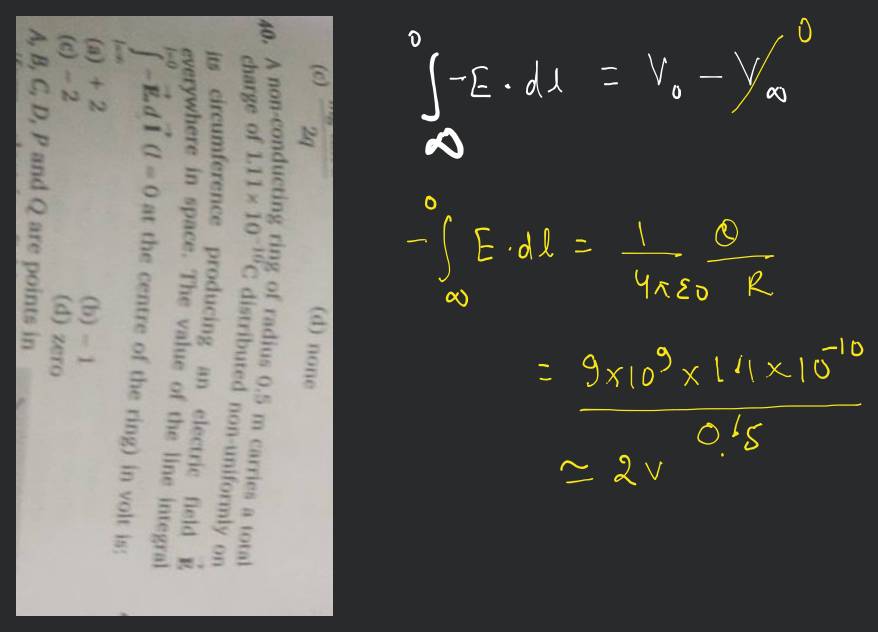 (c) 2q (d) none
40. A non-conducting ring of radius 0.5 m carries a total
charge of 1.11 × 10⁻¹⁰ C distributed non-uniformly on
its circumference producing an electric field E⃗
everywhere in space. The value of the line integral
∫_{l=∞}^{l=0} −E⃗.d l⃗ (l = 0 at the centre of the ring) in volt is:
(a) + 2 (b) − 1
(c) − 2 (d) zero
A, B, C, D, P and Q are points in
∫_∞^0 −E · dl = V₀ − V_∞ 0
−∫_∞^0 E · dl = 1/4πε0 Q/R
= 9×10⁹ × 1.11 × 10⁻¹⁰ / 0.5
≃ 2 V